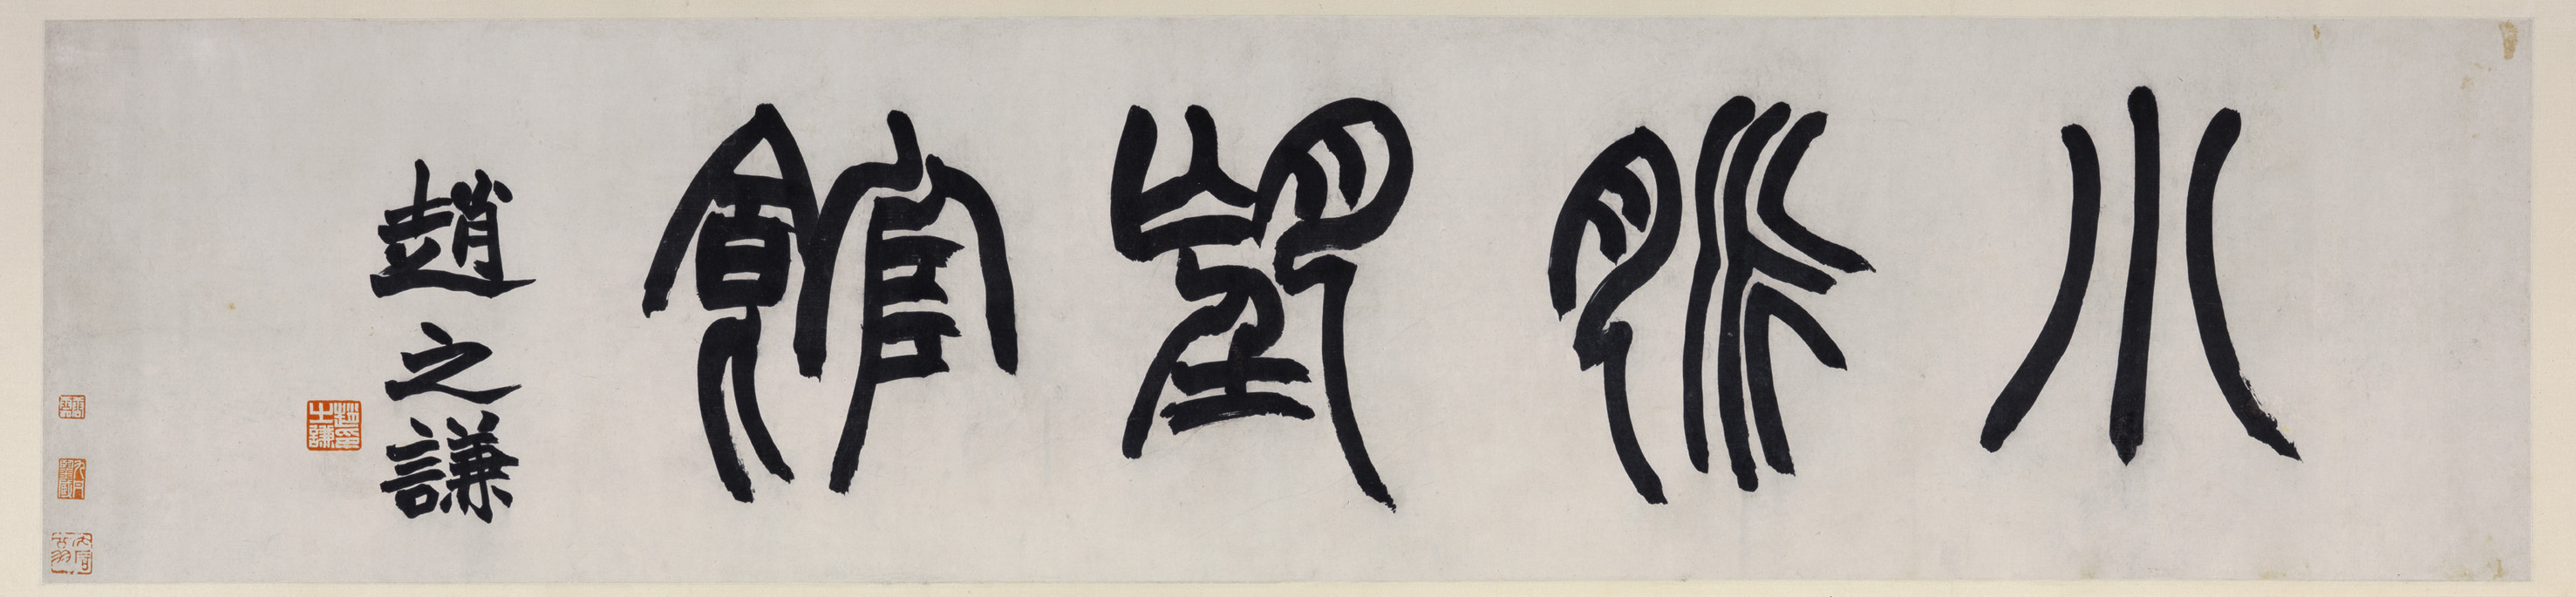 小脈望館
趙之謙
趙印之謙